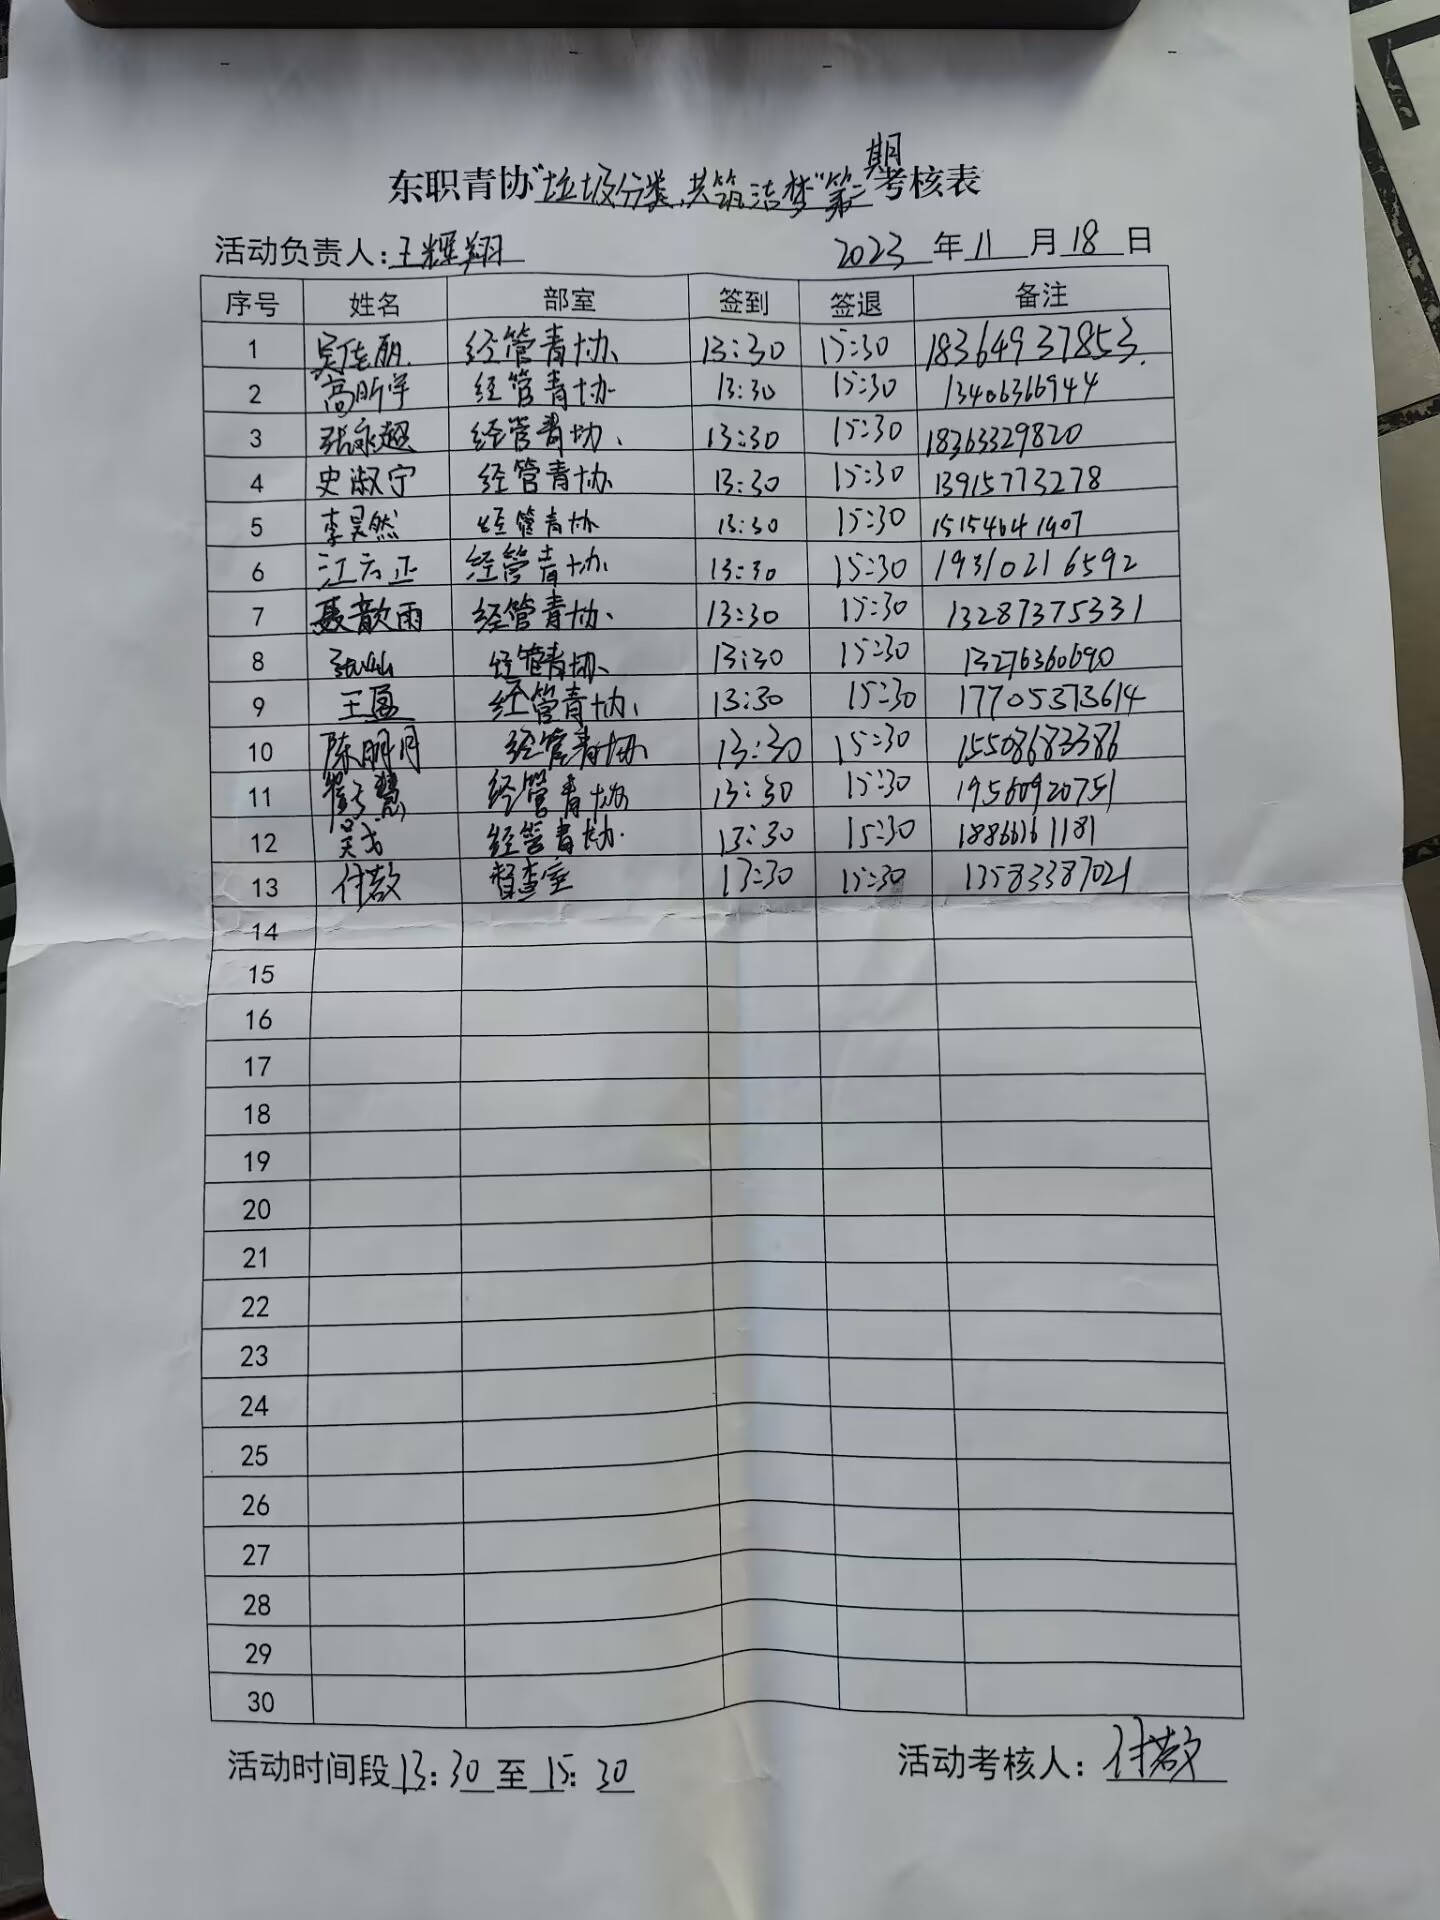 期
东职青协"垃圾分类,共筑洁梦"第二考核表
活动负责人:王辉翔 2023年11月18日
序号 姓名 部室 签到 签退 备注
1 吴佳丽 经管青协 13:30 15:30 18364937853
2 高昕宇 经管青协 13:30 15:30 13406316944
3 张永超 经管青协 13:30 15:30 18363329820
4 史淑宁 经管青协 13:30 15:30 13915773278
5 李昊然 经管青协 13:30 15:30 15154641907
6 江云正 经管青协 13:30 15:30 19310216592
7 聂歆雨 经管青协 13:30 15:30 13287375331
8 经管青协 13:30 15:30 13276360690
9 王盈 经管青协 13:30 15:30 17705373614
10 陈明月 经管青协 13:30 15:30 15508683386
11 经管青协 13:30 15:30 19560920751
12 经管青协 13:30 15:30 18866161181
13 付敬 督查室 13:30 15:30 13583387021
14
15
16
17
18
19
20
21
22
23
24
25
26
27
28
29
30
活动时间段13:30至15:30 活动考核人:付敬